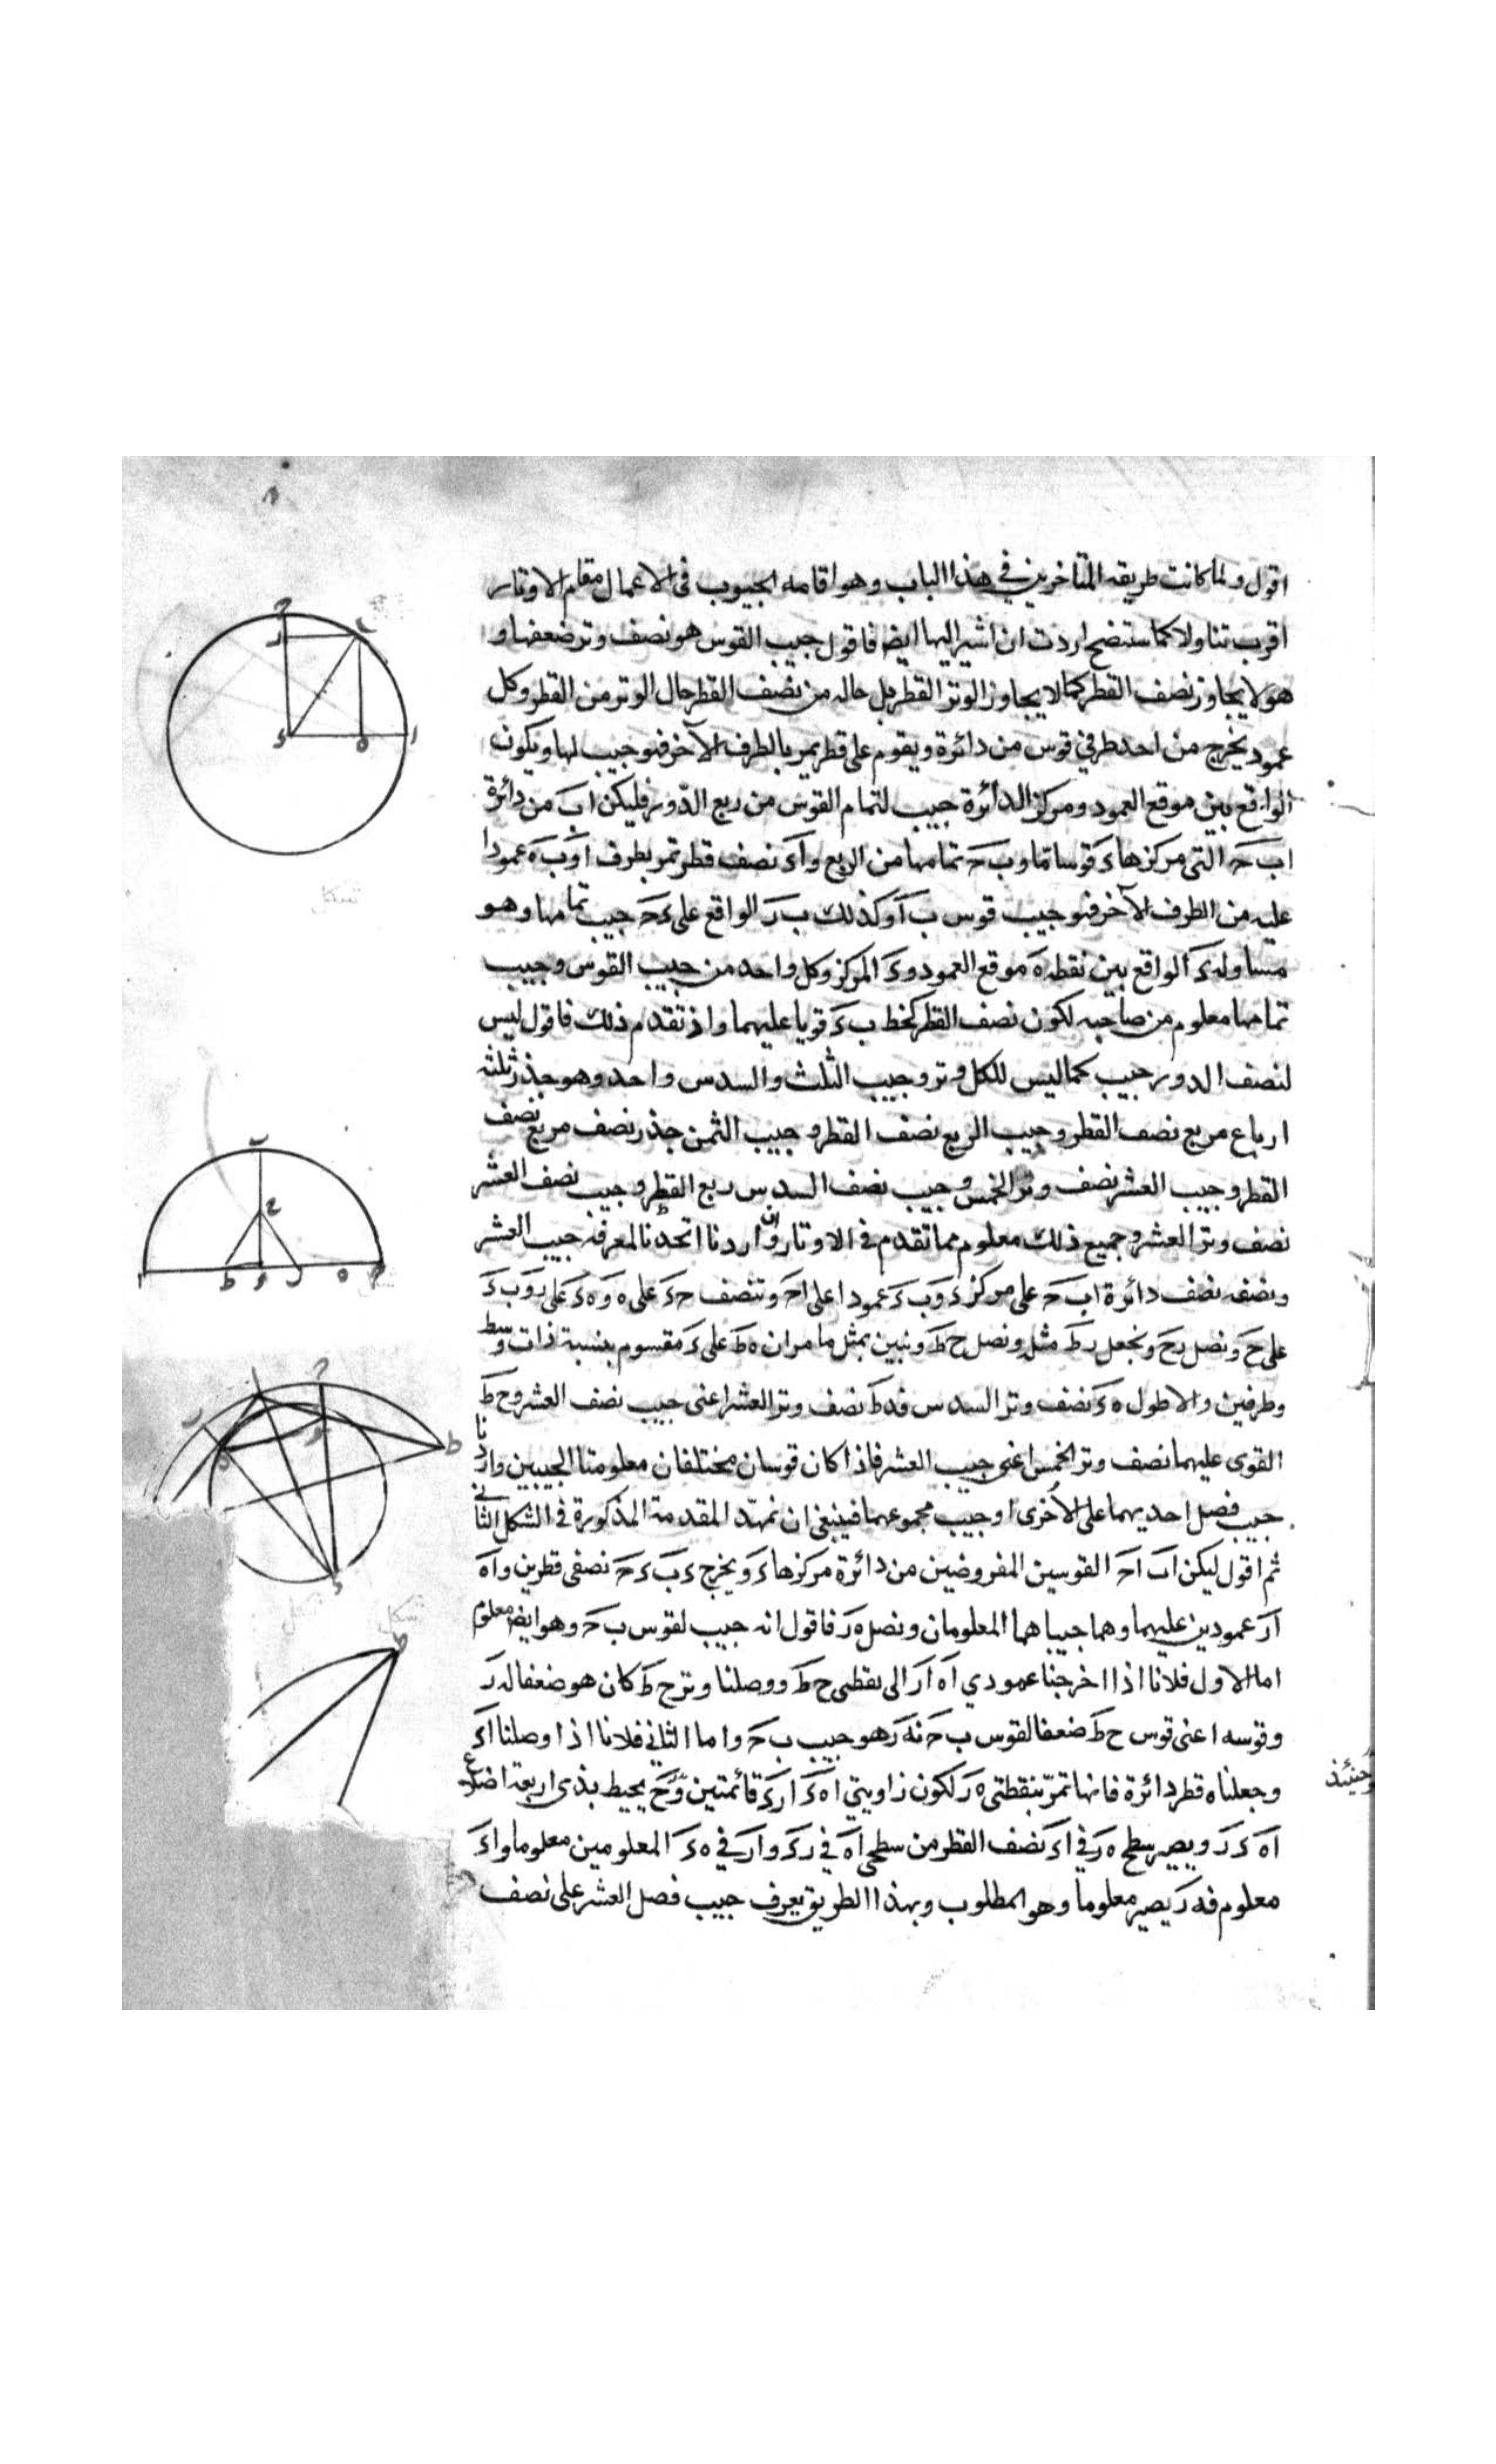 اقول ولما كانت طريقه المتأخرين في هذا الباب وهو اقامه الجيوب فى الاعمال مقام الاوتار
اقرب تناولا كما ستضح اردت ان اشير اليها ايضا فاقول جيب القوس هو نصف وتر ضعفها و
هو لا يجاوز نصف القطر كما لا يجاوز الوتر القطر بل حاله من نصف القطر حال الوتر من القطر وكل
عمود يخرج من احد طرفي قوس من دائرة ويقوم على قطر يمر بالطرف الآخر فهو جيب لها ويكون
الواقع بين موقع العمود ومركز الدائرة جيب لتمام القوس من ربع الدّور فليكن اب من دائرة
اب حه التى مركزها ء قوسا ما وب حـ تمامها من الربع واء نصف قطر تمر بطرف ا وب ه عمودا
عليه من الطرف الآخر فهو جيب قوس ب ا وكذلك ب ر الواقع على ء حـ جيب تمامها وهو
مساو له ء الواقع بين نقطه ه موقع العمود وء المركز وكل واحد من جيب القوس وجيب
تمامها معلوم من صاحبه لكون نصف القطر كخط ب ء قويا عليهما واذ تقدم ذلك فاقول ليس
لنصف الدور جيب كما ليس للكل وتر وجيب الثلث والسدس واحد وهو جذر ثلثه
ارباع مربع نصف القطر وجيب الربع نصف القطر وجيب الثمن جذر نصف مربع نصف
القطر وجيب العشر نصف وتر الخمس وجيب نصف السدس ربع القطر وجيب نصف العشر
نصف وتر العشر وجميع ذلك معلوم مما تقدم في الاوتار وان اردنا اتحدنا لمعرفه جيب العشر
ونصفه نصف دائرة اب حـ على مركز ء وب ء عمودا على ا حـ وننصف حـ ء على ه و ه ء على ر وب ء
على ح ونصل ر ح ونجعل ر ط مثله ونصل ح ط ونبين بمثل ما مر ان ه ط على ء مقسوم بنسبة ذات وسط
وطرفين والاطول ه ء نصف وتر السدس فد ط نصف وتر العشر اعنى جيب نصف العشر وح ط
القوى عليهما نصف وتر الخمس اعنى جيب العشر فاذا كان قوسان مختلفان معلومتا الجيبين واردنا
جيب فضل احديهما على الأخرى او جيب مجموعهما فينبغى ان نمهّد المقدمة المذكورة في الشكل الثانى
ثم اقول ليكن اب ا حـ القوسين المفروضين من دائرة مركزها ء ويخرج ء ب ء حـ نصفى قطرين و ا ه
ا ر عمودين عليهما وهما جيباهما المعلومان ونصل ه ر فاقول انه جيب لقوس ب حـ وهو ايضا معلوم
اما الاول فلانا اذا اخرجنا عمودي ا ه ا ر الى نقطى ح ط ووصلنا وتر ح ط كان هو ضعفا له ر
وقوسه اعنى قوس ح ط ضعفا لقوس ب حـ فه ر هو جيب ب حـ واما الثانى فلانا اذا وصلنا ا ء
وجعلناه قطر دائرة فانها تمرّ بنقطتى ه ر لكون زاويتي ا ه ء ا ر ء قائمتين وح يحيط بذى اربعة اضلاع
وحينئذ
ا ه ء ر ويصير سطح ه ر في ا ء نصف القطر من سطحى ا ه في ر ء وا ر في ه ء المعلومين معلوما وا ء
معلوم فه ر يصير معلوما وهو المطلوب وبهذا الطريق يعرف جيب فضل العشر على نصف